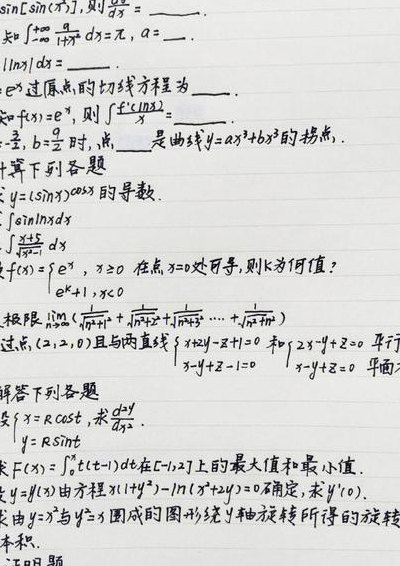 sin[sin(x²)],则 dy/dx = ____.
知∫_{-∞}^{+∞} a/(1+x²) dx=π, a=__.
|lnx|dx=____.
=eˣ过原点的切线方程为____.
知f(x)=eˣ, 则∫f'(lnx)/x=____.
=-3/2, b=9/2时,点____是曲线y=ax³+bx³的拐点.
计算下列各题
求y=(sinx)^{cosx}的导数.
∫sinlnxdx
∫(x+5)/√(x²-1) dx
f(x)={eˣ, x≥0 在点x=0处可导,则k为何值?
eᵏ+1, x<0
极限 lim_{n→∞}(1/√(n²+1²)+1/√(n²+2²)+1/√(n²+3²)....+1/√(n²+n²))
过点(2,2,0)且与两直线{x+2y-z+1=0 和{2x-y+z=0 平行
x-y+z-1=0 x-y+z=0 平面
解答下列各题
设{x=Rcost,求d²y/dx².
y=Rsint
求F(x)=∫₀ˣt(t-1)dt在[-1,2]上的最大值和最小值.
y=y(x)由方程x(1+y²)-ln(x²+2y)=0确定,求y'(0).
求由y=x²与y²=x围成的图形绕y轴旋转所得的旋转
体积.
证明题